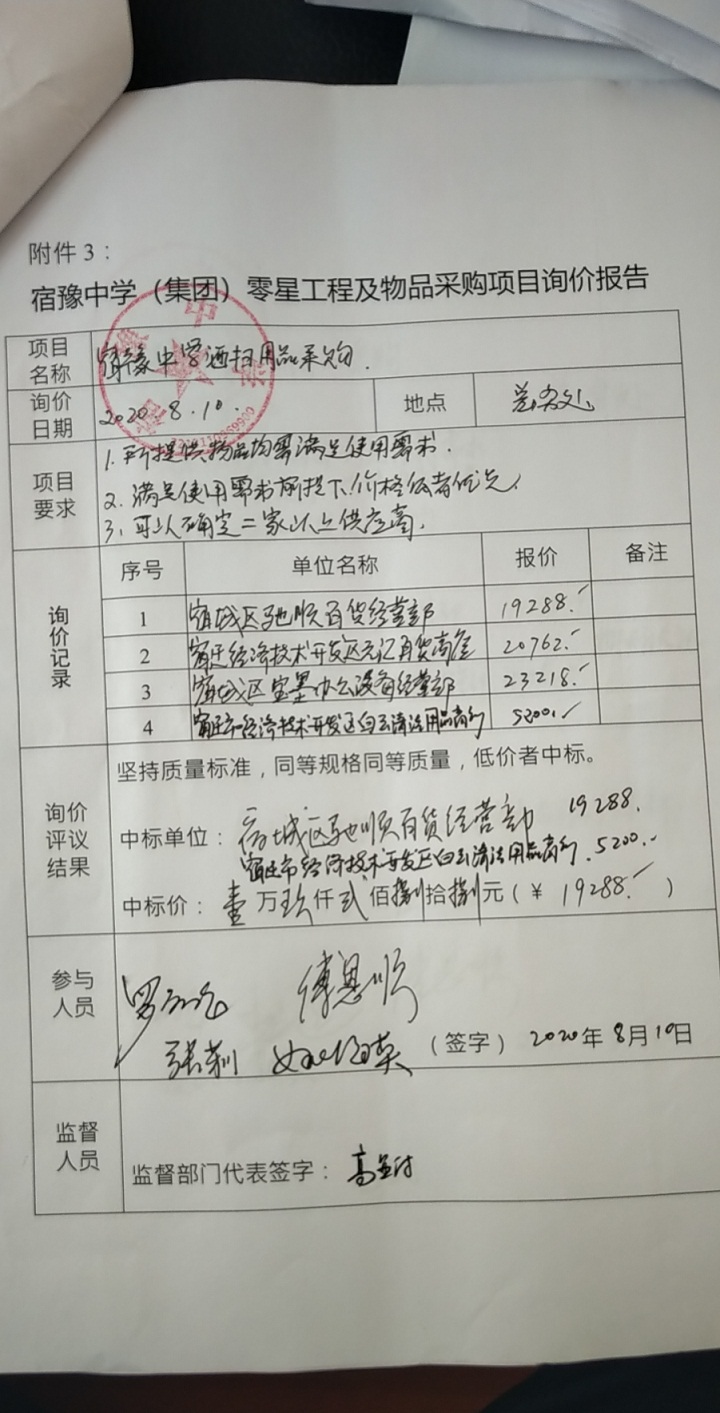 附件3：
宿豫中学（集团）零星工程及物品采购项目询价报告
项目名称 宿豫中学洒扫用品采购.
询价日期 2020.8.10. 地点 总务处
项目要求 1.所提供物品均需满足使用需求.
2.满足使用需求前提下,价格低者优先,
3.可以确定二家以上供应商.
询价记录 序号 单位名称 报价 备注
1 宿城区驰顺百货经营部 19288.
2 宿迁经济技术开发区 百货商 20762.
3 宿城区宝墨办公设备经营部 23218.
4 宿迁市经济技术开发区白云清洁用品商行 5200.
询价评议结果 坚持质量标准，同等规格同等质量，低价者中标。
中标单位：宿城区驰顺百货经营部 19288.
宿迁市经济技术开发区白云清洁用品商行.5200.
中标价：壹万玖仟贰佰捌拾捌元（￥19288.）
参与人员 傅恩顺
张莉 （签字） 2020年8月10日
监督人员 监督部门代表签字：高